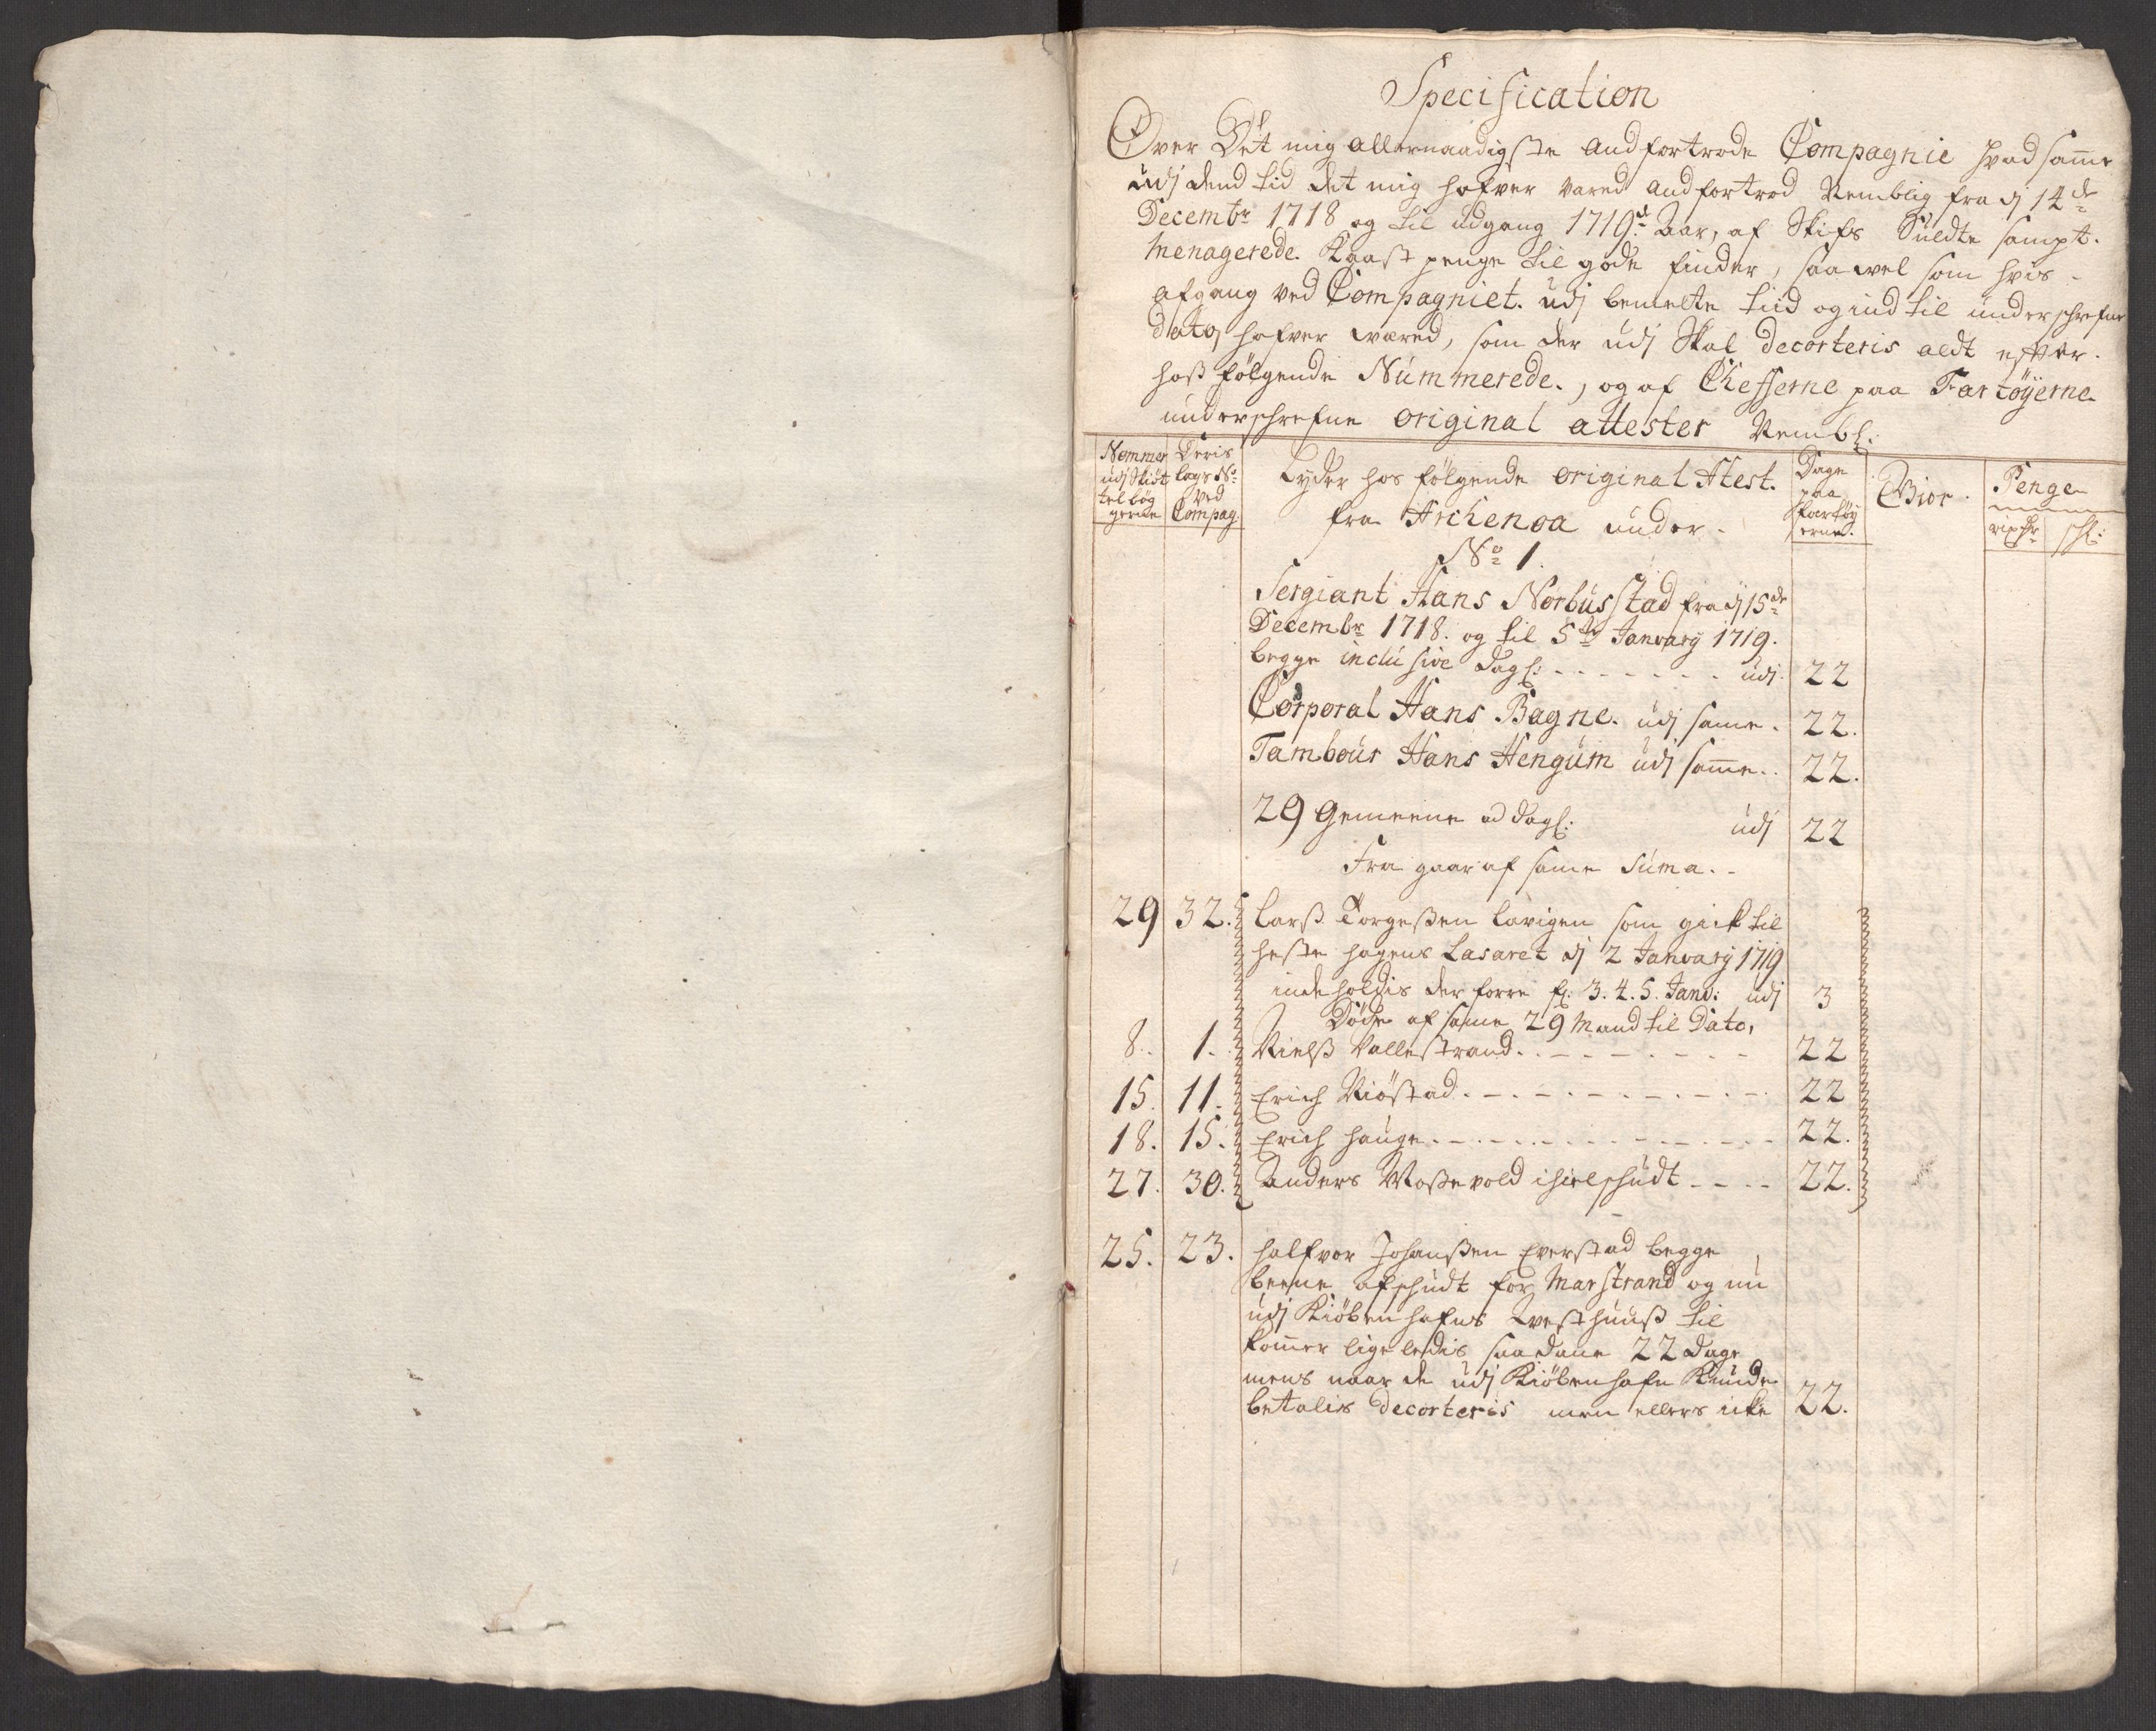 Specification
Over Det mig allernaadigste andfortrode Compagnie hvad samme
udj dend tid det mig hafver vared andfortrod Nemblig fra dj 14de
Decembr 1718 og til udgang 1719de Aar, af Skifs Súldte sampt.
Menagerede Kaast penge til gode finder, saa wel som hvis
afgang ved Compagniet. udj bemelte tiid og ind til underschrefne
dato hafver wæred, som der udj Skal decorteris aldt efter.
hoß følgende Númmerede., og af Chefferne paa Fartöyerne
underschrefne original attester Nembl:
Nommer
udj Skiöt
tel bög
gerne
Deris
laegs No
ved
Compag.
Lyder hos følgende original Atest.
fra Archenoa under
No 1.
Dage
paa
fartöy
erne.
Bior.
Penge
rixdr
schl:
Sergiant Hans Norbusstad fra dj 15de
Decembr 1718. og til 5te Janvarij 1719.
begge inclúsive dagl: udj 22
Corporal Hans Bagne. udj samme. 22.
Tambour Hans Hengúm udj samme. 22.
29 Gemeene ad dagl: udj 22
Fra gaar af samme Súma.
29 32. Larß Torgeßen Lavigen som gick til
heste hagens Lasaret dj 2 Janvarij 1719
inde holdis der forre fl. 3. 4. 5. Janv: udj 3
Döde af samme 29 Mand til Dato,
8. 1. Nielß Vallestrand 22
15. 11. Erich Riöstad 22
18. 15. Erich Hauge 22.
27. 30. Anders Woßevold ihielschúdt 22.
25. 23. Halfvor Johanßen Everstad begge
beene afschúdt for Marstrand og nu
udj Kiöbenhafns Qvesthuuß til
kommer lige ledis saadane 22 dage
mens naar de udj Kiöbenhafn Kunde
betalis decorteris men ellers icke 22.